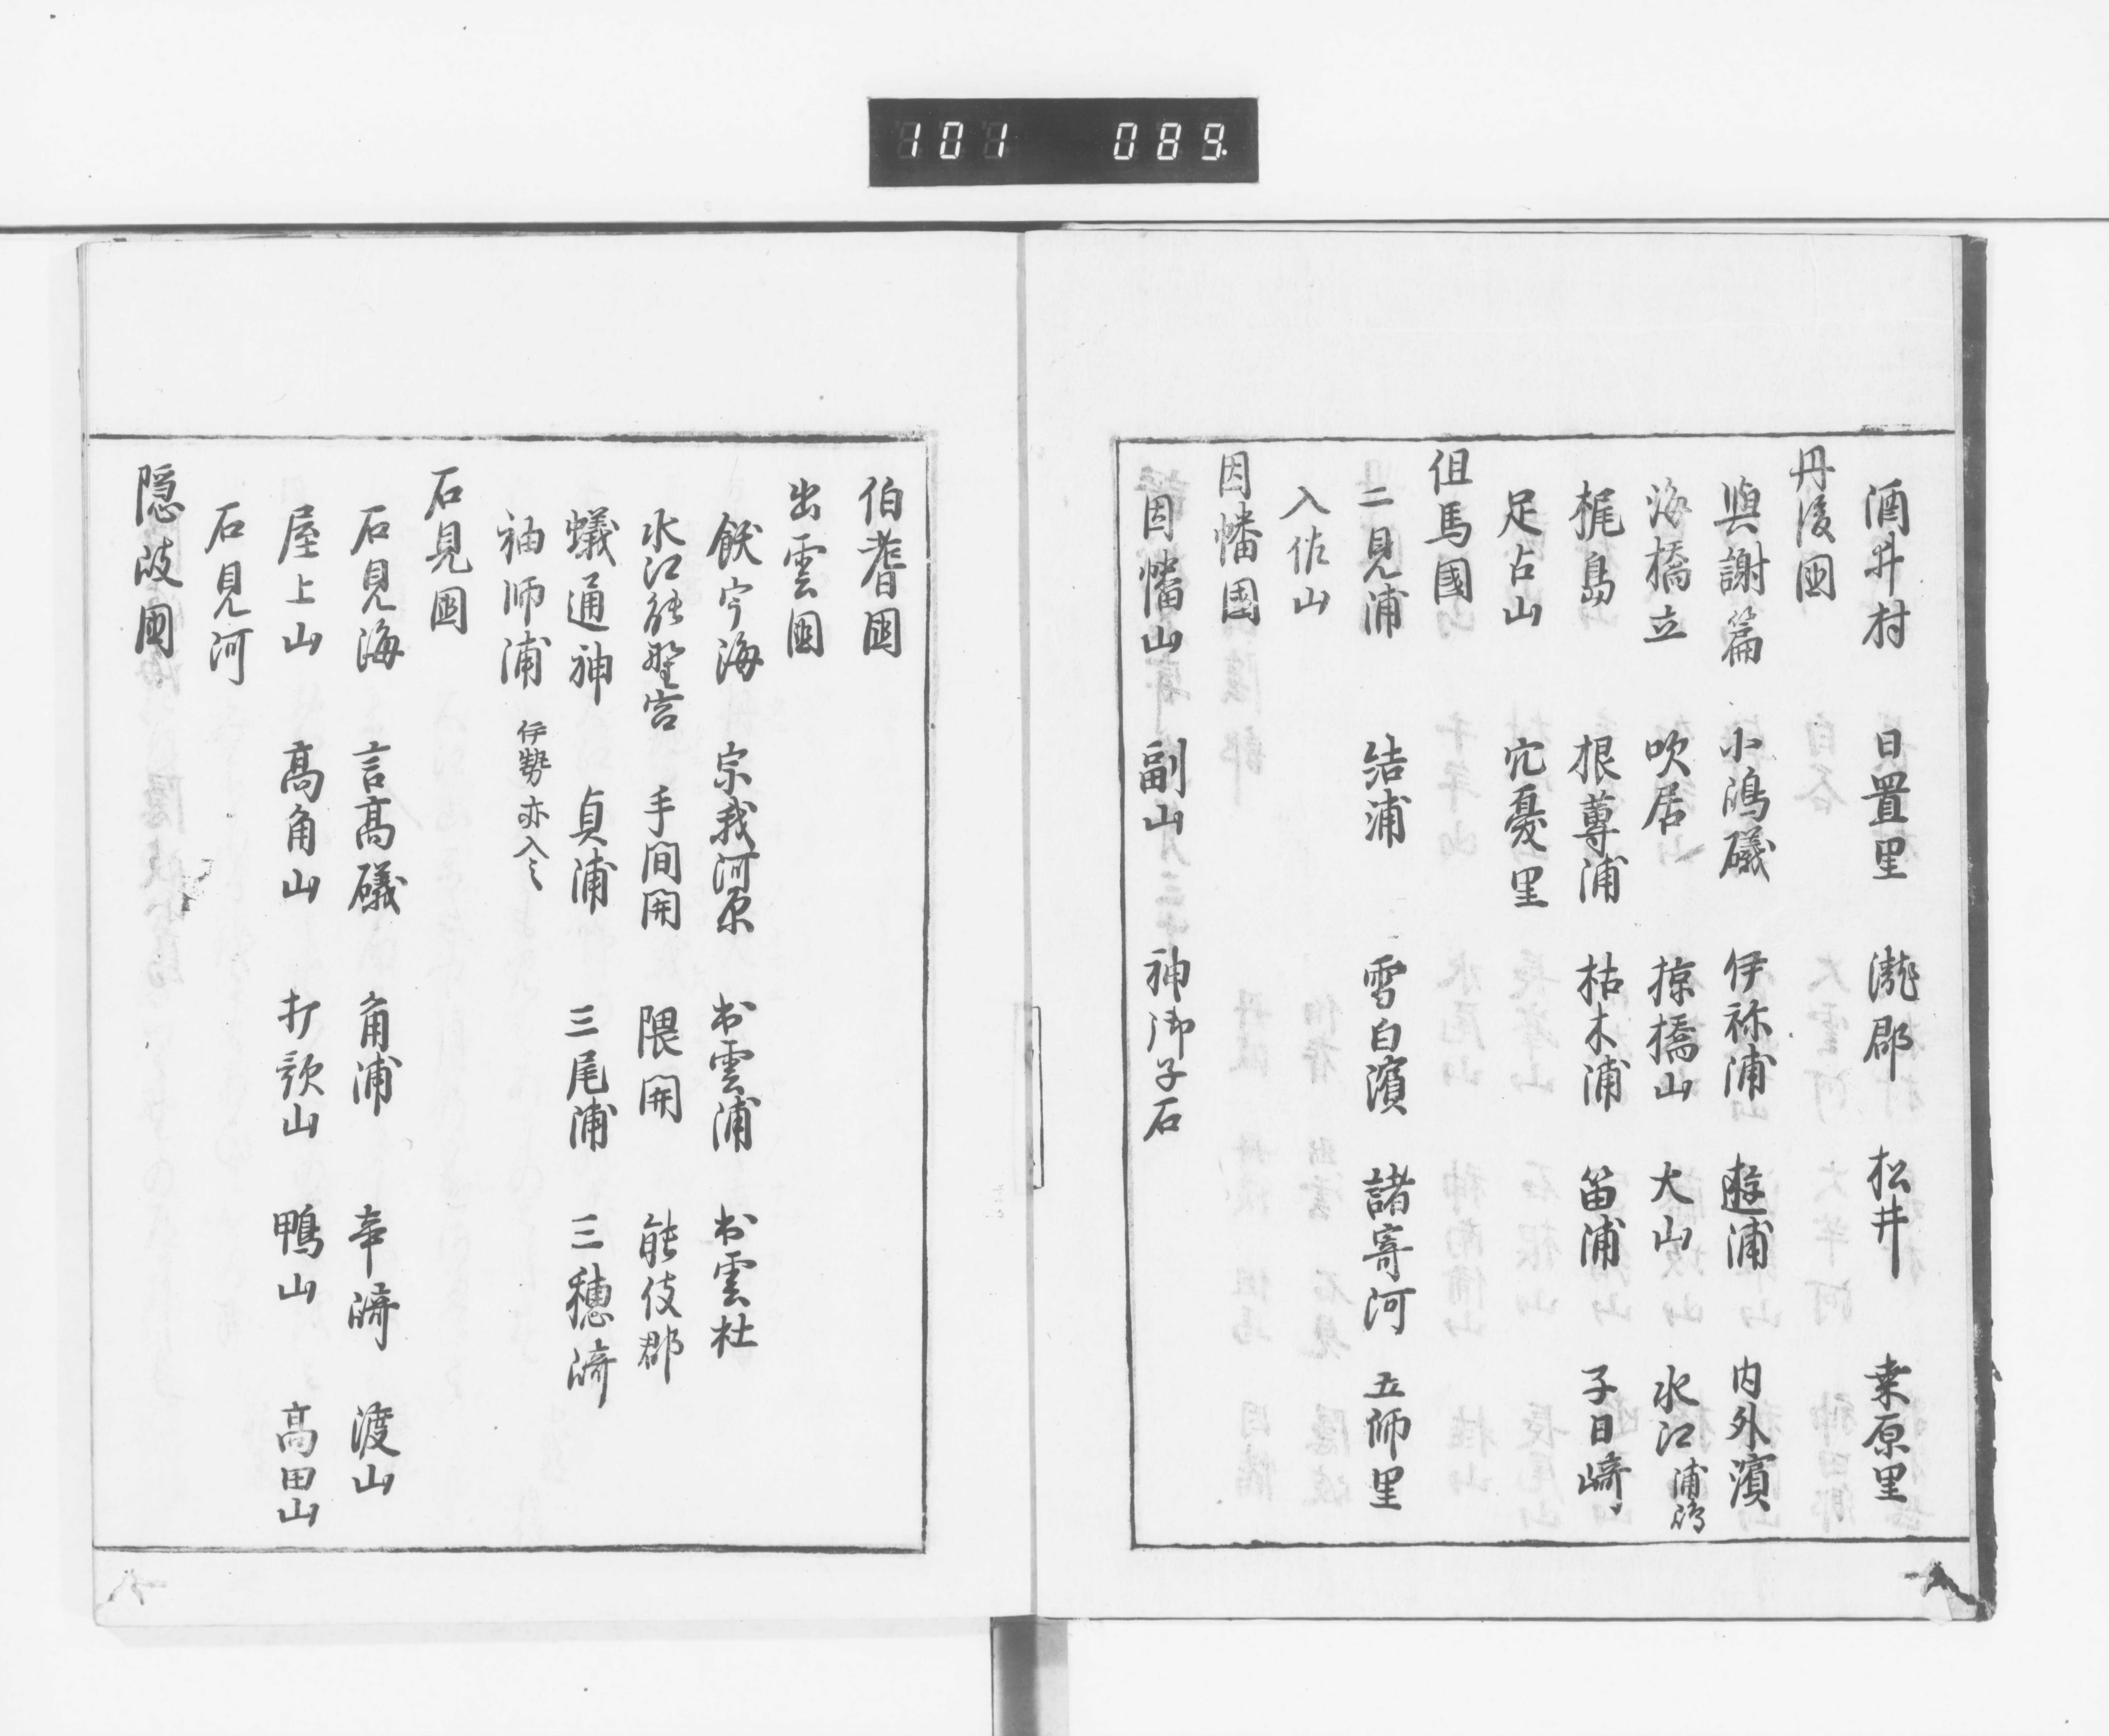 101 089
酒井村 日置里 瀧郡 松井 桒原里
丹後國
與謝篇 小嶋礒 伊祢浦 遊浦 内外濱
海橋立 吹居 掠橋山 大山 水江浦嶋
梶島 根蓴浦 枯木浦 笛浦 子日崎
足占山 宂憂里
但馬國
二見浦 結浦 雪白濱 諸寄河 五師里
入佐山
因幡國
因幡山 副山 神御子石
伯耆國
出雲國
飫宇海 宗我河原 出雲浦 出雲杜
水江能野宮 手間関 隈関 能伎郡
蟻通神 貞浦 三尾浦 三穂崎
袖师浦 伊勢亦入之
石見國
石見海 言髙礒 角浦 辛崎 渡山
屋上山 髙角山 打歌山 鴨山 髙田山
石見河
隠岐國